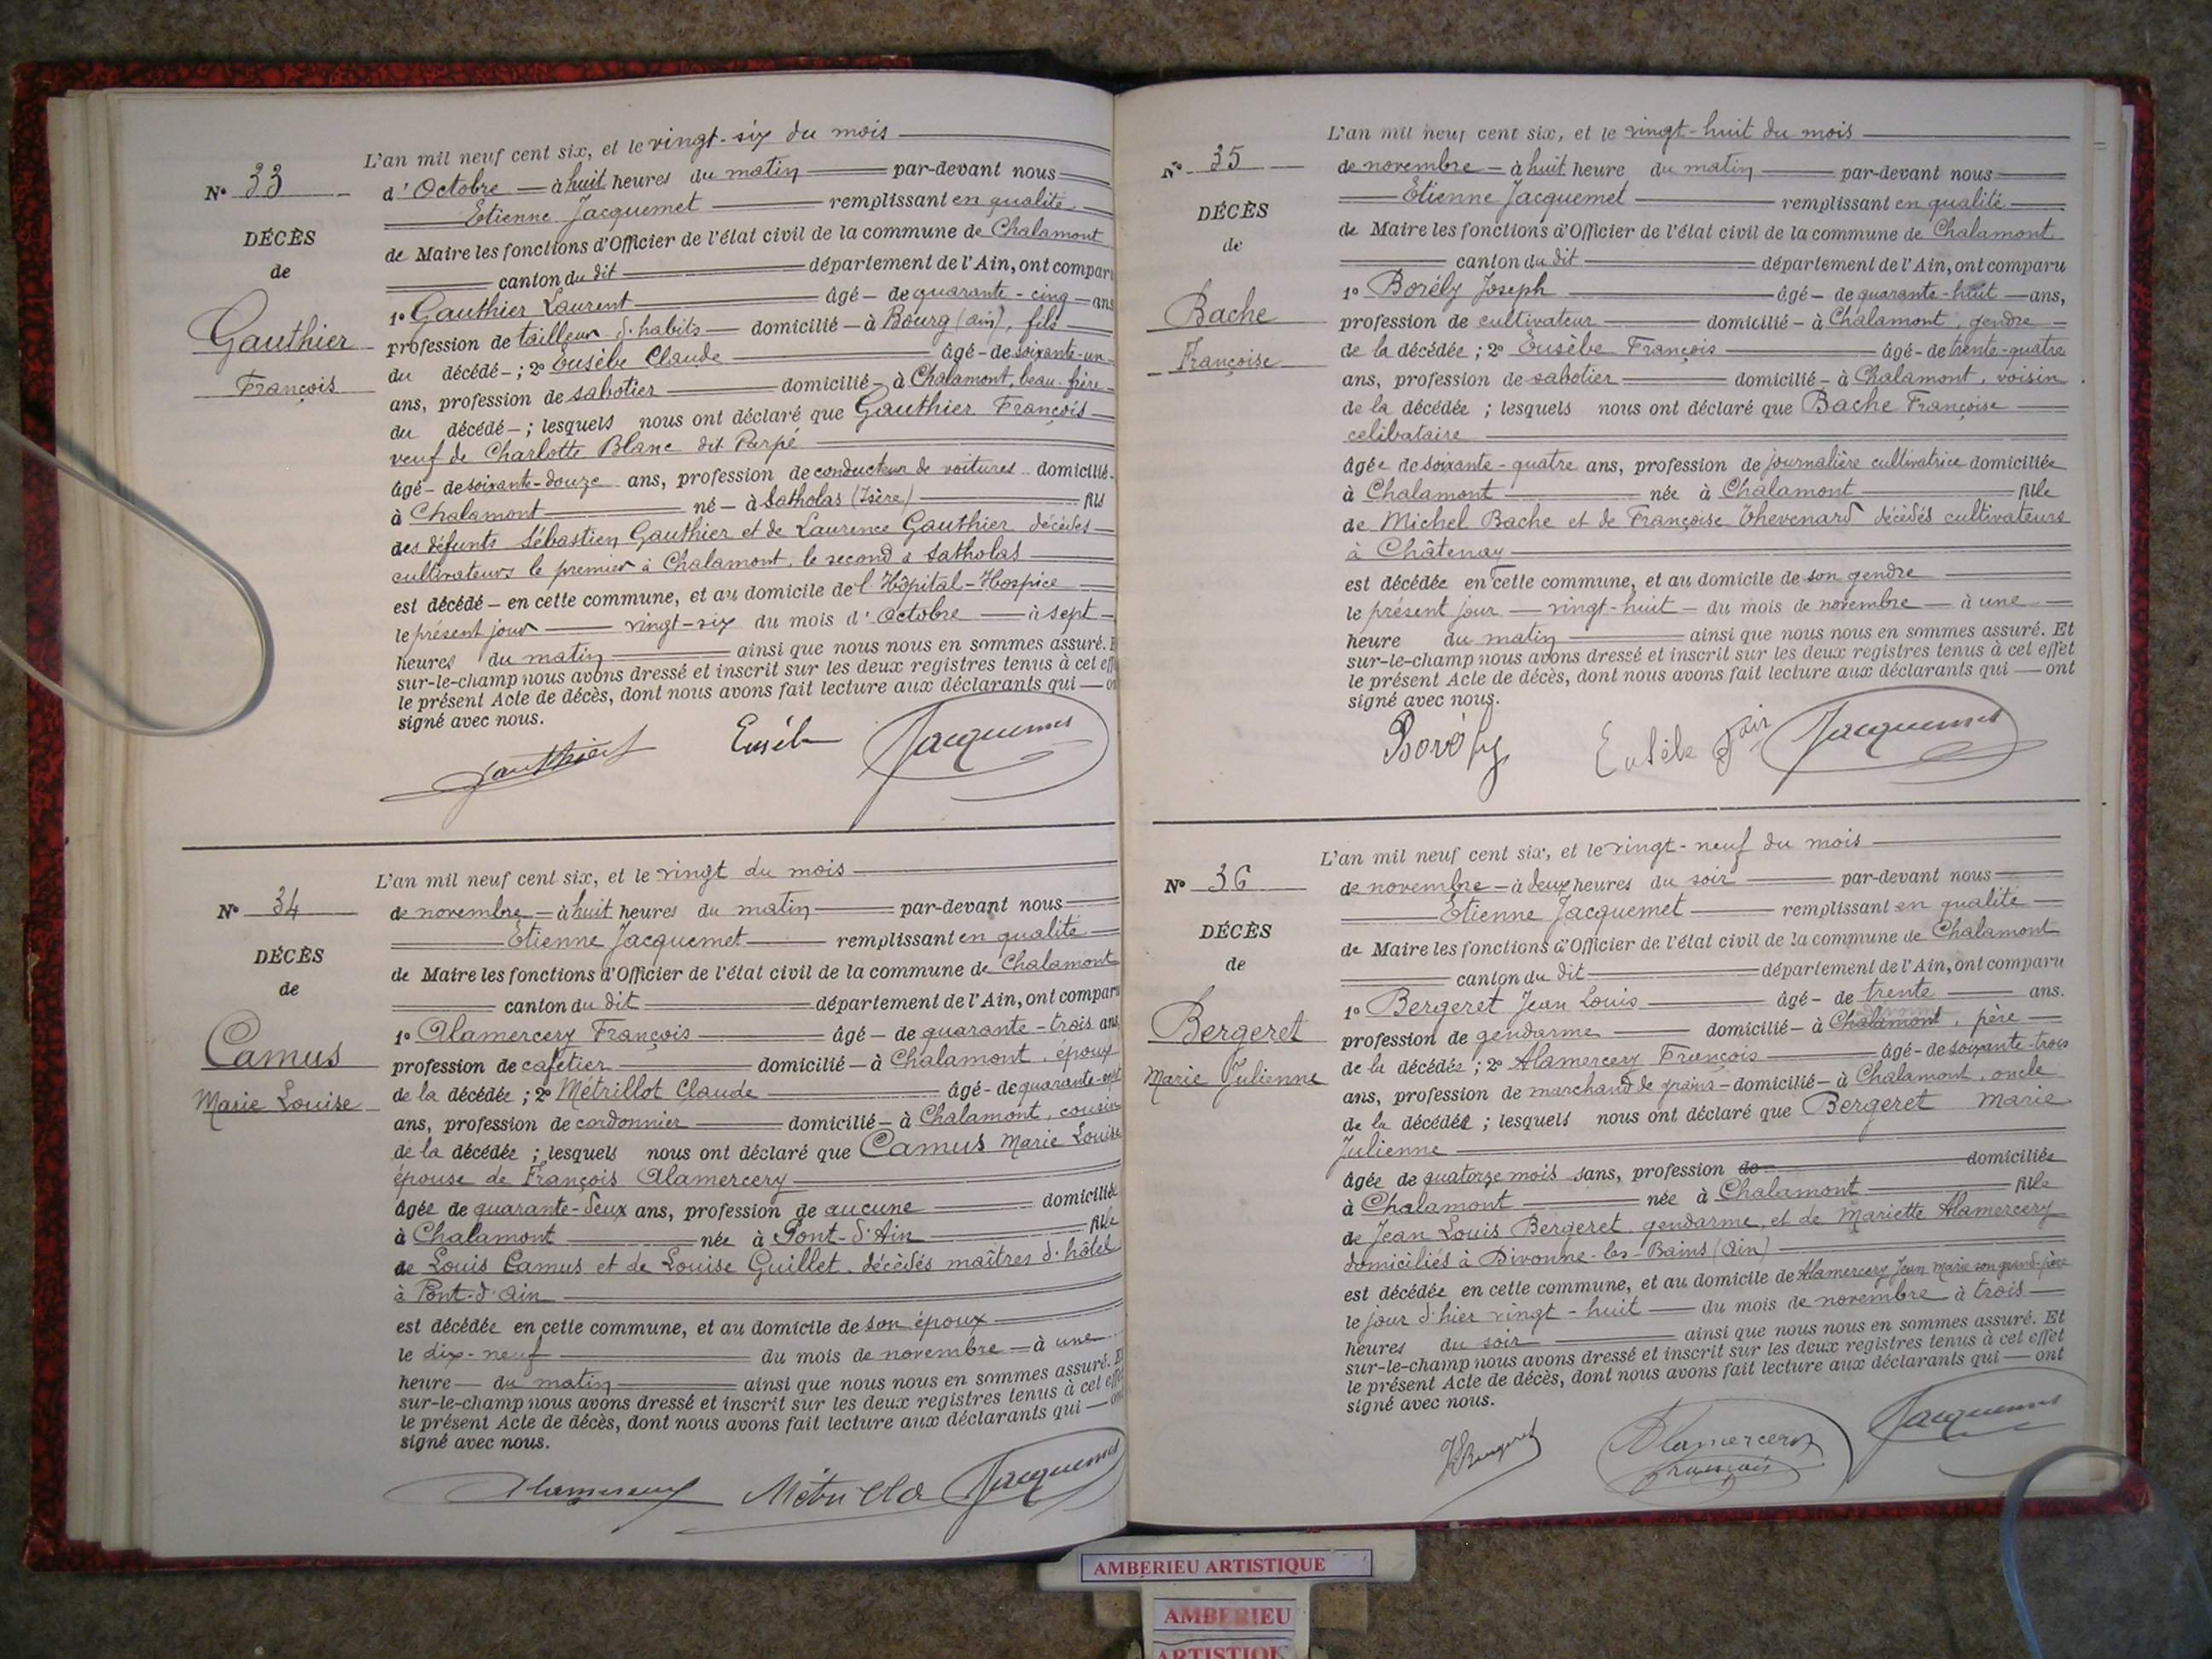 N° 33
DÉCÈS
de
Gauthier
François
L'an mil neuf cent six, et le vingt-six du mois
d'Octobre — à huit heures du matin — par-devant nous
Etienne Jacquemet — remplissant en qualité
de Maire les fonctions d'Officier de l'état civil de la commune de Chalamont
canton du dit — département de l'Ain, ont compar
1° Gauthier Laurent — âgé — de quarante-cinq — ans
profession de tailleur d'habits — domicilié — à Bourg (ain), fils
du décédé — ; 2° Eusèbe Claude — âgé — de soixante-un
ans, profession de sabotier — domicilié — à Chalamont, beau-frère
du décédé — ; lesquels nous ont déclaré que Gauthier François
veuf de Charlotte Blanc dit Parpé
âgé — de soixante-douze ans, profession de conducteur de voitures domicilié
à Chalamont — né — à Satholas (Isère) — fils
des défunts Sébastien Gauthier et de Laurence Gauthier décédés
cultivateurs le premier à Chalamont, le second à Satholas
est décédé — en cette commune, et au domicile de l'Hôpital-Hospice
le présent jour — vingt-six du mois d'Octobre — à sept
heures du matin — ainsi que nous nous en sommes assuré. E
sur-le-champ nous avons dressé et inscrit sur les deux registres tenus à cet eff
le présent Acte de décès, dont nous avons fait lecture aux déclarants qui — on
signé avec nous.
Gauthier Eusèbe Jacquemet
N° 34
DÉCÈS
de
Camus
Marie Louise
L'an mil neuf cent six, et le vingt du mois
de novembre — à huit heures du matin — par-devant nous
Etienne Jacquemet — remplissant en qualité
de Maire les fonctions d'Officier de l'état civil de la commune de Chalamont
canton du dit — département de l'Ain, ont comparu
1° Alamercery François — âgé — de quarante-trois ans
profession de cafetier — domicilié — à Chalamont, époux
de la décédée ; 2° Métrillot Claude — âgé — de quarante-sept
ans, profession de cordonnier — domicilié — à Chalamont, cousin
de la décédée ; lesquels nous ont déclaré que Camus Marie Louise
épouse de François Alamercery
âgée de quarante-deux ans, profession de aucune — domiciliée
à Chalamont — née à Pont-d'Ain — fille
de Louis Camus et de Louise Guillet décédés maîtres d'hôtel
à Pont-d'Ain
est décédée en cette commune, et au domicile de son époux
le dix-neuf — du mois de novembre — à une
heure — du matin — ainsi que nous nous en sommes assuré. E
sur-le-champ nous avons dressé et inscrit sur les deux registres tenus à cet effet
le présent Acte de décès, dont nous avons fait lecture aux déclarants qui — ont
signé avec nous.
Alamercery Jacquemet
N° 35
DÉCÈS
de
Bache
Françoise
L'an mil neuf cent six, et le vingt-huit du mois
de novembre — à huit heure du matin — par-devant nous
Etienne Jacquemet — remplissant en qualité
de Maire les fonctions d'Officier de l'état civil de la commune de Chalamont
canton du dit — département de l'Ain, ont comparu
1° Borély Joseph — âgé — de quarante-huit — ans,
profession de cultivateur — domicilié — à Chalamont, gendre
de la décédée ; 2° Eusèbe François — âgé — de trente-quatre
ans, profession de sabotier — domicilié — à Chalamont, voisin
de la décédée ; lesquels nous ont déclaré que Bache Françoise
celibataire
âgée de soixante-quatre ans, profession de journalière cultivatrice domiciliée
à Chalamont — née à Chalamont — fille
de Michel Bache et de Françoise Thevenard décédés cultivateurs
à Châtenay
est décédée en cette commune, et au domicile de son gendre
le présent jour — vingt-huit — du mois de novembre — à une
heure du matin — ainsi que nous nous en sommes assuré. Et
sur-le-champ nous avons dressé et inscrit sur les deux registres tenus à cet effet
le présent Acte de décès, dont nous avons fait lecture aux déclarants qui — ont
signé avec nous.
Borély Eusèbe Jacquemet
N° 36
DÉCÈS
de
Bergeret
Marie Julienne
L'an mil neuf cent six, et le vingt-neuf du mois
de novembre — à deux heures du soir — par-devant nous
Etienne Jacquemet — remplissant en qualité
de Maire les fonctions d'Officier de l'état civil de la commune de Chalamont
canton du dit — département de l'Ain, ont comparu
1° Bergeret Jean Louis — âgé — de trente — ans.
profession de gendarme — domicilié — à Chalamont, père
de la décédée ; 2° Alamercery François — âgé — de soixante-trois
ans, profession de marchand de grains — domicilié — à Chalamont, oncle
de la décédée ; lesquels nous ont déclaré que Bergeret Marie
Julienne
âgée de quatorze mois sans, profession de — domiciliée
à Chalamont — née à Chalamont — fille
de Jean Louis Bergeret gendarme, et de Mariette Alamercery
domiciliés à Divonne-les-Bains (Ain)
est décédée en cette commune, et au domicile de Alamercery Jean Marie son grand-père
le jour d'hier vingt-huit — du mois de novembre à trois
heures du soir — ainsi que nous nous en sommes assuré. Et
sur-le-champ nous avons dressé et inscrit sur les deux registres tenus à cet effet
le présent Acte de décès, dont nous avons fait lecture aux déclarants qui — ont
signé avec nous.
Bergeret Alamercery Jacquemet
François
AMBERIEU ARTISTIQUE
AMBERIEU
ARTISTIQUE